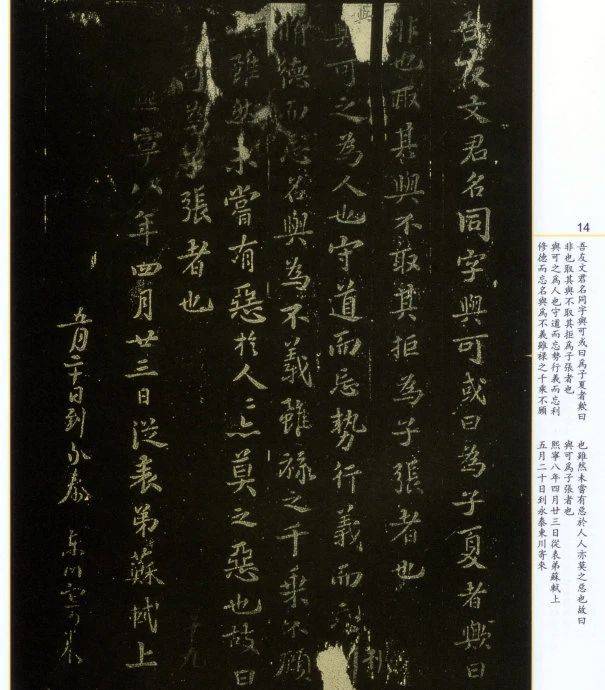 14
吾友文君名同字與可或曰爲子夏者歟曰
非也取其與不取其拒爲子張者也
與可之爲人也守道而忘勢行義而忘利
修德而忘名與爲不義雖祿之千乘不顧
也雖然未嘗有惡於人人亦莫之惡也故曰
與可爲子張者也
熙寧八年四月廿三日從表弟蘇軾上
五月二十日到永泰東川寄來
吾友文君名同字與可或曰為子夏者歟曰
非也取其與不取其拒為子張者也
與可之為人也守道而忘勢行義而忘利
脩德而忘名與為不義雖祿之千乘不顧
也雖然未嘗有惡於人〻亦莫之惡也故曰
與可為子張者也
熙寧八年四月廿三日從表弟蘇軾上
五月二十日到永泰東川寄来